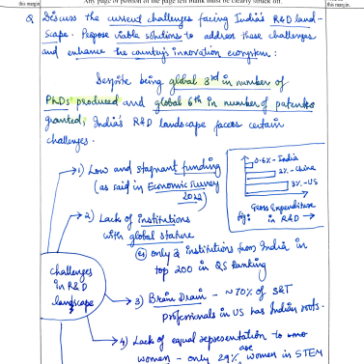 this margin
Any page or portion of the page left blank must be clearly struck off.
this margin.
Q. Discuss the current challenges facing India's R&D land-
scape. Propose viable solutions to address these challenges
and enhance the country's innovation ecosystem:
Despite being global 3rd in number of
PhDs produced and global 6th in number of patents
granted, India's R&D landscape faces certain
challenges.
→1) Low and stagnant funding
(as said in Economic Survey
2022)
0.6% - India
2% - China
3% - US
Gross Expenditure
in R&D →
→2) Lack of institutions
with global stature
only 2 institutions from India in
top 200 in QS Ranking
challenges
in R&D
landscape
→3) Brain Drain - ~70% of S&T
professionals in US has Indian roots.
→4) Lack of equal representation to
women - only 29% are women in STEM